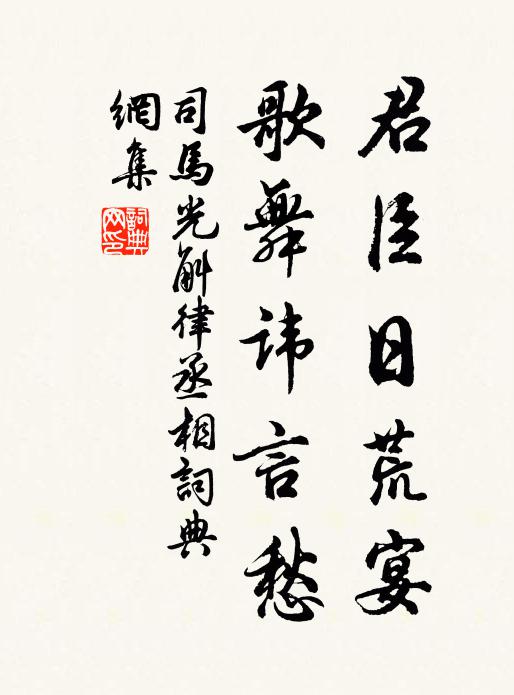 君臣日荒宴
歌舞讳言愁
司馬光斛律丞相詞典
網集
詞典
网印